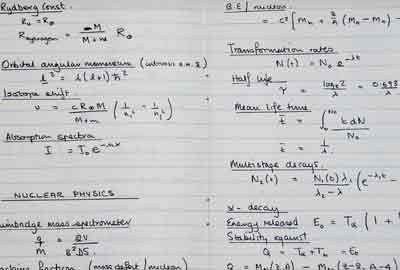 Rydberg Const.
R₀ = R∞
R hydrogen = M / (M + m) R∞
Orbital angular momentum (intrinsic
l² = l(l+1)ħ²
Isotope shift.
ν = cR∞M / (M+m) (1/n₁² - 1/n₂²)
Absorption spectra
I = I₀e^
NUCLEAR PHYSICS
mass spectrometer
q/M =
fraction (mass defect / nucleon)
B.E / nucleon
= c² [Mn + (Mn - Mn) -
Transformation rates.
N(t) = N₀ e^-λt
Half life
τ = loge2 / λ = 0.693
Mean life time
t̄ = ∫ t dN / N₀
t̄ = 1/λ
Multistage decays.
N₂(t) = N₁(0) λ₁ / (λ₂ - λ) (e^-λ₁t -
α - decay
Energy released E₀ = Tα (1 +
Stability against
Q = Tα + Tb = E₀